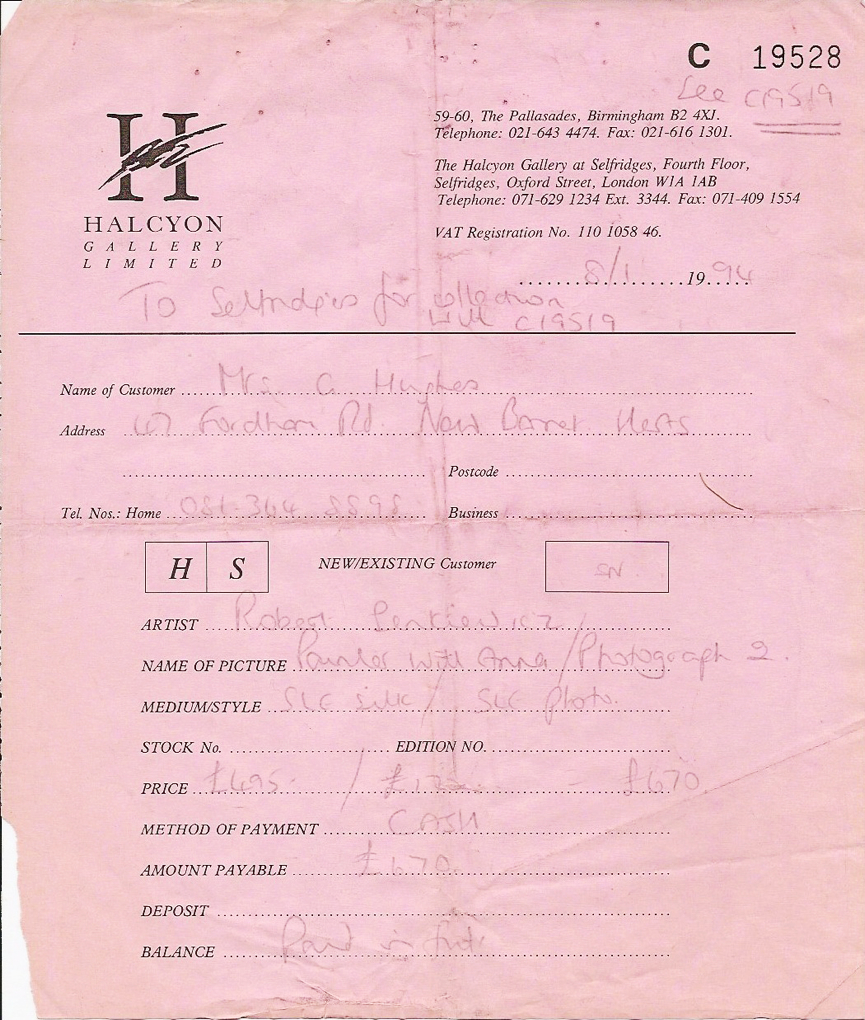 C 19528
See C19519
59-60, The Pallasades, Birmingham B2 4XJ.
Telephone: 021-643 4474. Fax: 021-616 1301.
The Halcyon Gallery at Selfridges, Fourth Floor,
Selfridges, Oxford Street, London W1A 1AB
Telephone: 071-629 1234 Ext. 3344. Fax: 071-409 1554
VAT Registration No. 110 1058 46.
H
HALCYON
GALLERY
LIMITED
8/1 1994
To Selfridges for collection
with C19519
Name of Customer Mrs. G Hughes
Address 67 Fordham Rd. New Barnet Herts
Postcode
Tel. Nos.: Home 081-364 8898 Business
H S NEW/EXISTING Customer
ARTIST Robert Lenkiewicz
NAME OF PICTURE Painter with Anna / Photograph 2.
MEDIUM/STYLE SLE silk / SLE photo.
STOCK No. EDITION NO.
PRICE £495 / £175 - £670
METHOD OF PAYMENT CASH
AMOUNT PAYABLE £670
DEPOSIT
BALANCE Paid in full.